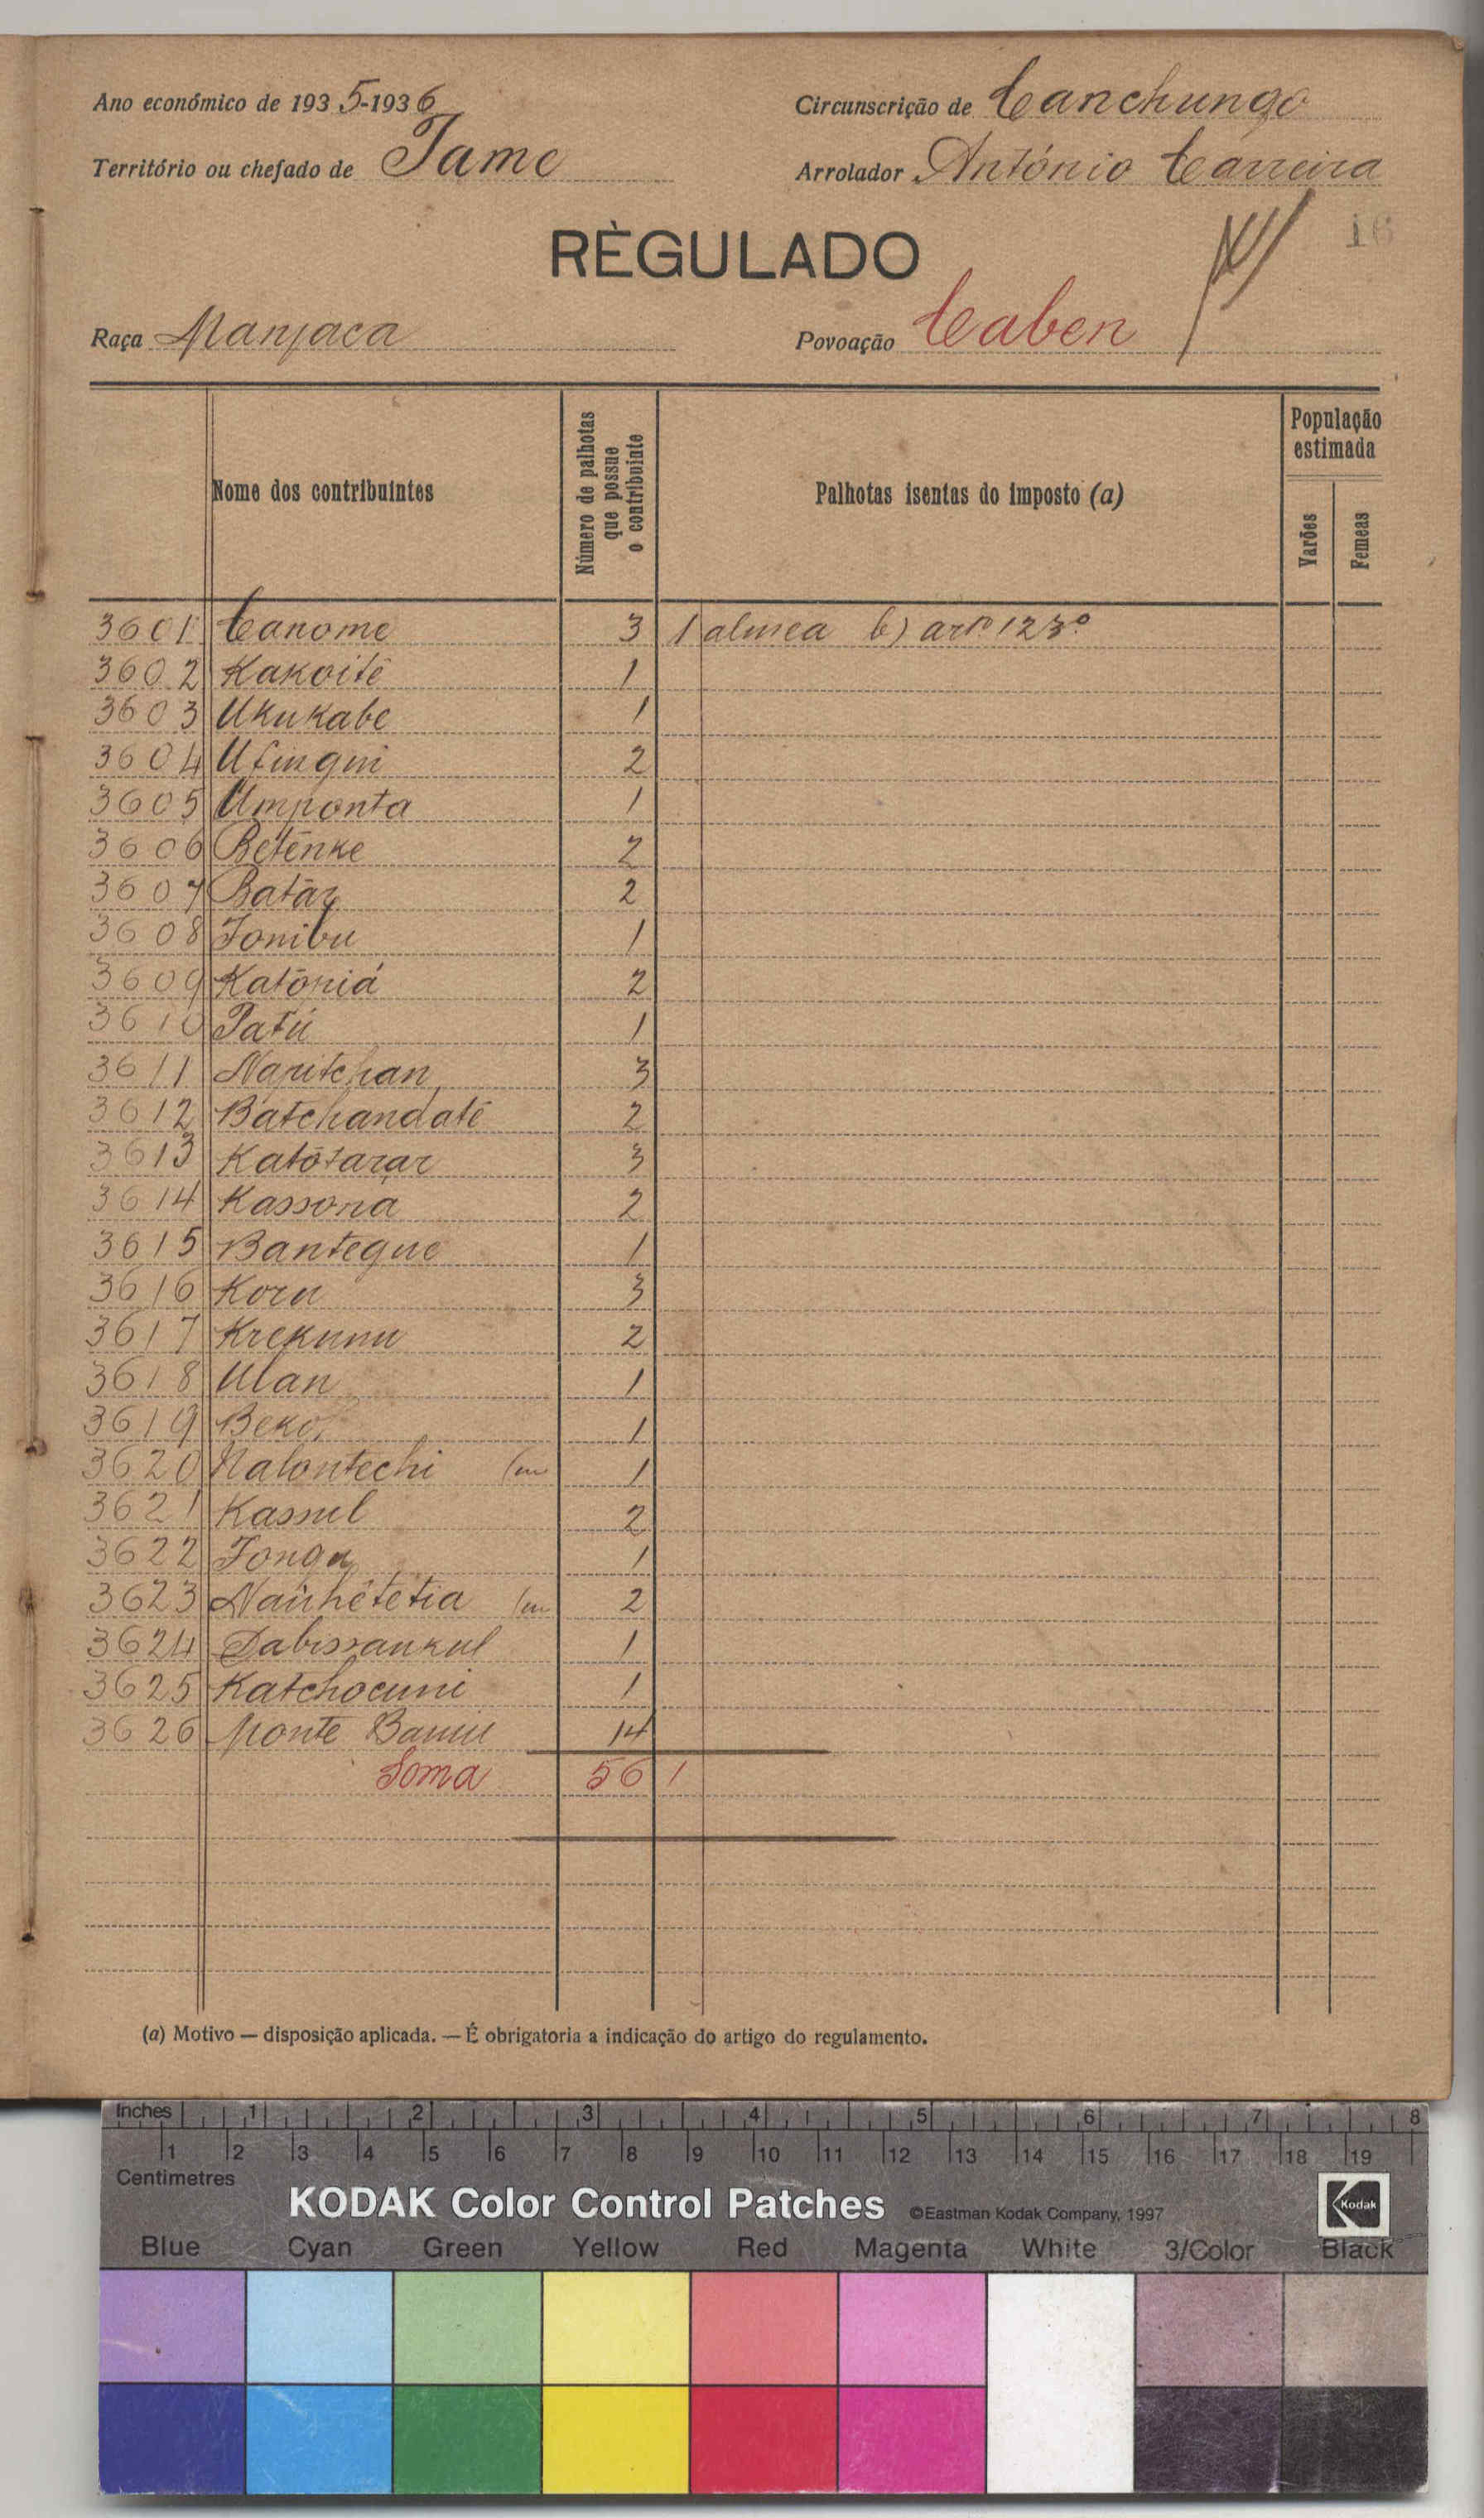 Ano económico de 1935-1936
Circunscrição de Canchungo
Território ou chefado de Tame
Arrolador António Carreira
16
RÈGULADO
Raça Manjaca
Povoação Caben
Nome dos contribuintes
Número de palhotas que possue o contribuinte
Palhotas isentas do imposto (a)
População estimada
Varões
Femeas
3601 Canome 3 1 alinea b) artº 123º
3602 Kakoité 1
3603 Ukukabe 1
3604 Ufingui 2
3605 Umponta 1
3606 Betênke 2
3607 Batár 2
3608 Jonibu 1
3609 Katóniá 2
3610 Patú 1
3611 Naputchan 3
3612 Batchandaté 2
3613 Katótarar 3
3614 Kassona 2
3615 Bantegue 1
3616 Koru 3
3617 Krekunu 2
3618 Ulan 1
3619 Beko 1
3620 Nalontechi 1
3621 Kassul 2
3622 Jonga 1
3623 Nanhétetia 2
3624 Dabissankul 1
3625 Katchocuni 1
3626 Monte 14
Soma 56 1
(a) Motivo — disposição aplicada. — É obrigatoria a indicação do artigo do regulamento.
Inches 1 2 3 4 5 6 7 8
1 2 3 4 5 6 7 8 9 10 11 12 13 14 15 16 17 18 19
Centimetres
KODAK Color Control Patches ©Eastman Kodak Company, 1997 Kodak
Blue Cyan Green Yellow Red Magenta White 3/Color Black